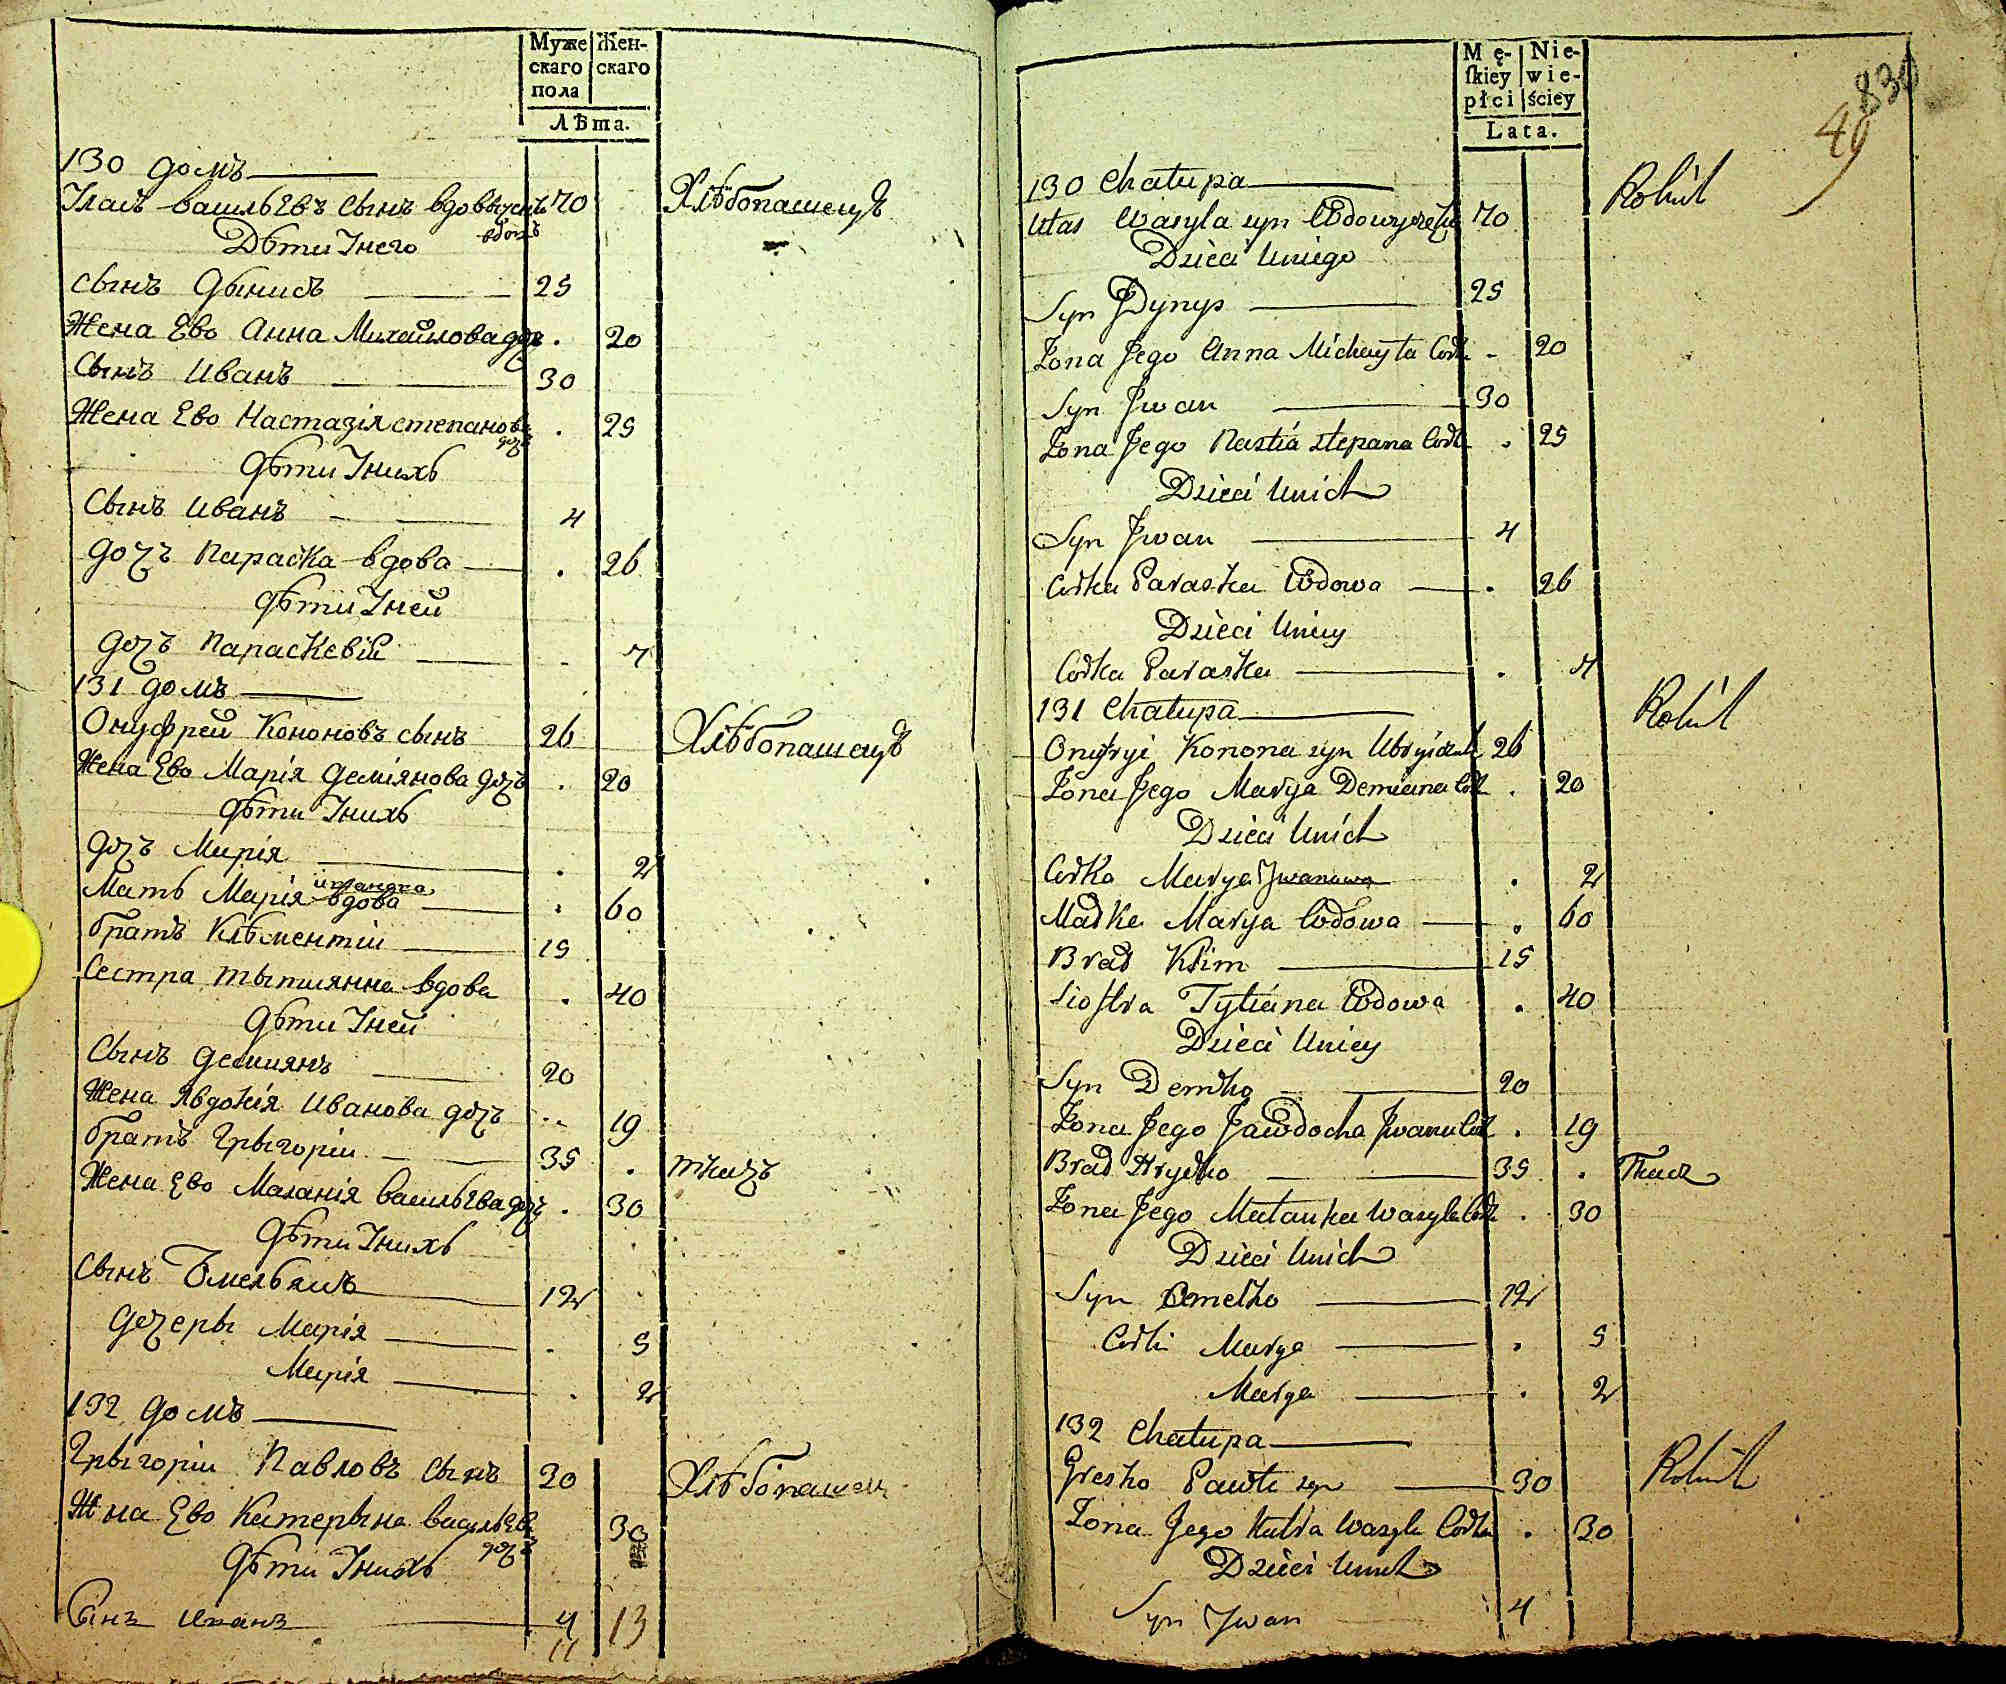 Муже Жен-
скаго скаго
пола
Лѣта.
130 домъ
Улас васильевъ Сынъ вдовъ 70 Хлѣбопашецъ
вдовъ
Дѣти Унего
Сынъ Дынисъ 25
Жена Ево Анна Михайлова доч . 20
Сынъ Иванъ 30
Жена Ево Настазія степанова . 25
дочъ
Дѣти Унихъ
Сынъ Иванъ 4
дочъ Параска вдова . 26
Дѣти Уней
дочъ Параскевія . 7
131 домъ
Онуфрей Кононовъ сынъ 26 Хлѣбопашецъ
Жена Ево Марія Деміянова дочъ . 20
Дѣти Унихъ
дочъ Марія . 2
Мать Марія вдова . 60
братъ Клѣментіи 15
Сестра тытиянна вдова . 40
Дѣти Уней
Сынъ Демиянъ 20
Жена Явдокія Иванова дочъ . 19
братъ Грыгоріи 35 . ткачъ
Жена Ево Маланія васильева дочъ . 30
Дѣти Унихъ
Сынъ Омельянъ 12
дочеры Марія . 5
Марія . 2
132 домъ
Грыгоріи Павловъ Сынъ 30 Хлѣбопашец
Жна Ево Катерына васильева 30
дочъ
Дѣти Унихъ
Сынъ Иванъ 4 13
11
Mę- Nie-
skiey wie-
płci ściey
Lata.
830
49
130 Chałupa Rolnik
Ułas Wasyla syn Wdowy 70
Dzieci Uniego
Syn Dynys 25
Żona Jego Anna Michayła Cor - 20
Syn Jwan 30
Żona Jego Nastia stepana Cor . 25
Dzieci Unich
Syn Jwan 4
Corka Paraska Wdowa . 26
Dzieci Unicy
Corka Paraska . 7
131 Chałupa Rolnik
Onufryi Konona syn 26
Żona Jego Marya Demiana Cor . 20
Dzieci Unich
Corka Marya Jwanowa . 2
Matka Marya Wdowa . 60
Brat Klim 15
Siostra Tytiana Wdowa . 40
Dzieci Unicy
Syn Demko 20
Żona Jego Jawdocha Jwana Cor . 19
Brat Hryćko 35 . Tkacz
Żona Jego Małanka Wasyla Cor . 30
Dzieci Unich
Syn Omelko 12
Corki Marya . 5
Marya . 2
132 Chałupa
Gresko Pawła syn 30 Rolnik
Żona Jego Wasyla Corka . 30
Dzieci Unich
Syn Jwan 4